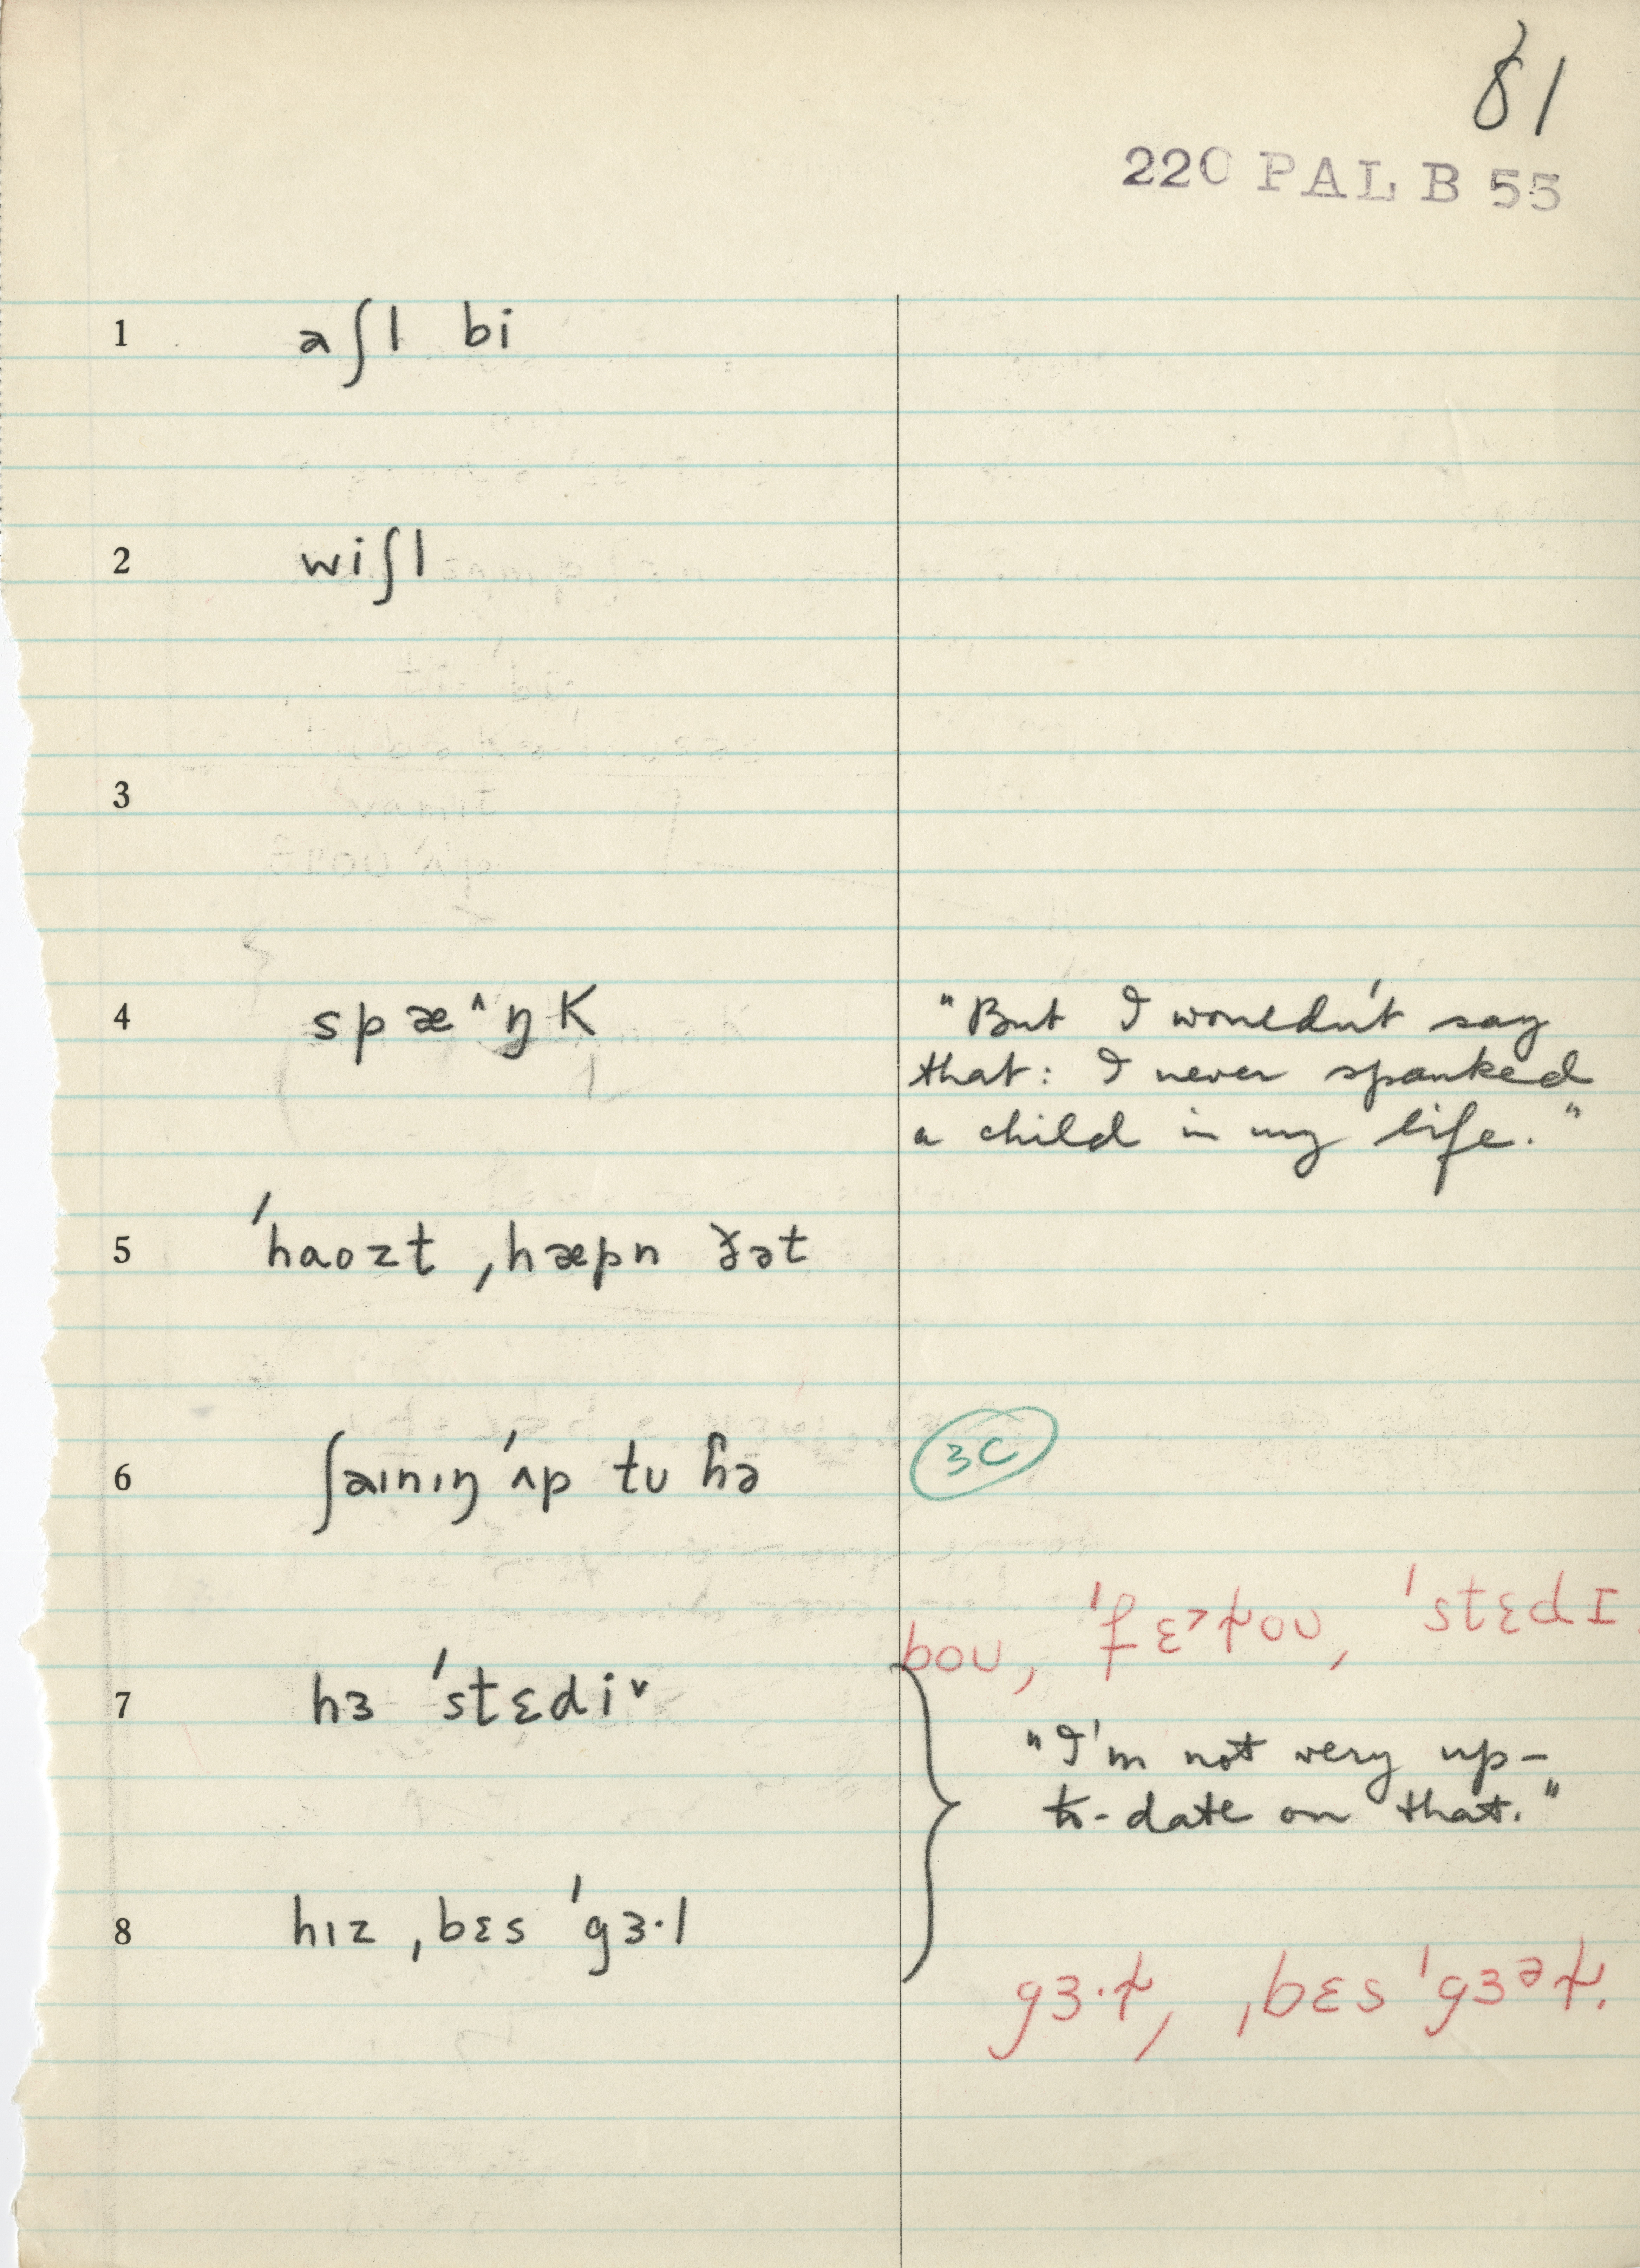 81
220 PAL B 55
1 aʃl bi
2 wiʃl
3
4 spæ^ŋk "But I wouldn't say
that: I never spanked
a child in my life."
5 ˈhaozt ˌhæpn ðət
6 ʃaɪnɪŋˈʌp tʊ ɦə 3C
boʊ, ˈstɛdɪ
7 hɜ ˈstɛdiˇ
"I'm not very up-
to-date on that."
8 hɪz ˌbɛs ˈgɜ·l
gɜ·ɫ, ˌbɛs ˈgɜᵊɫ.